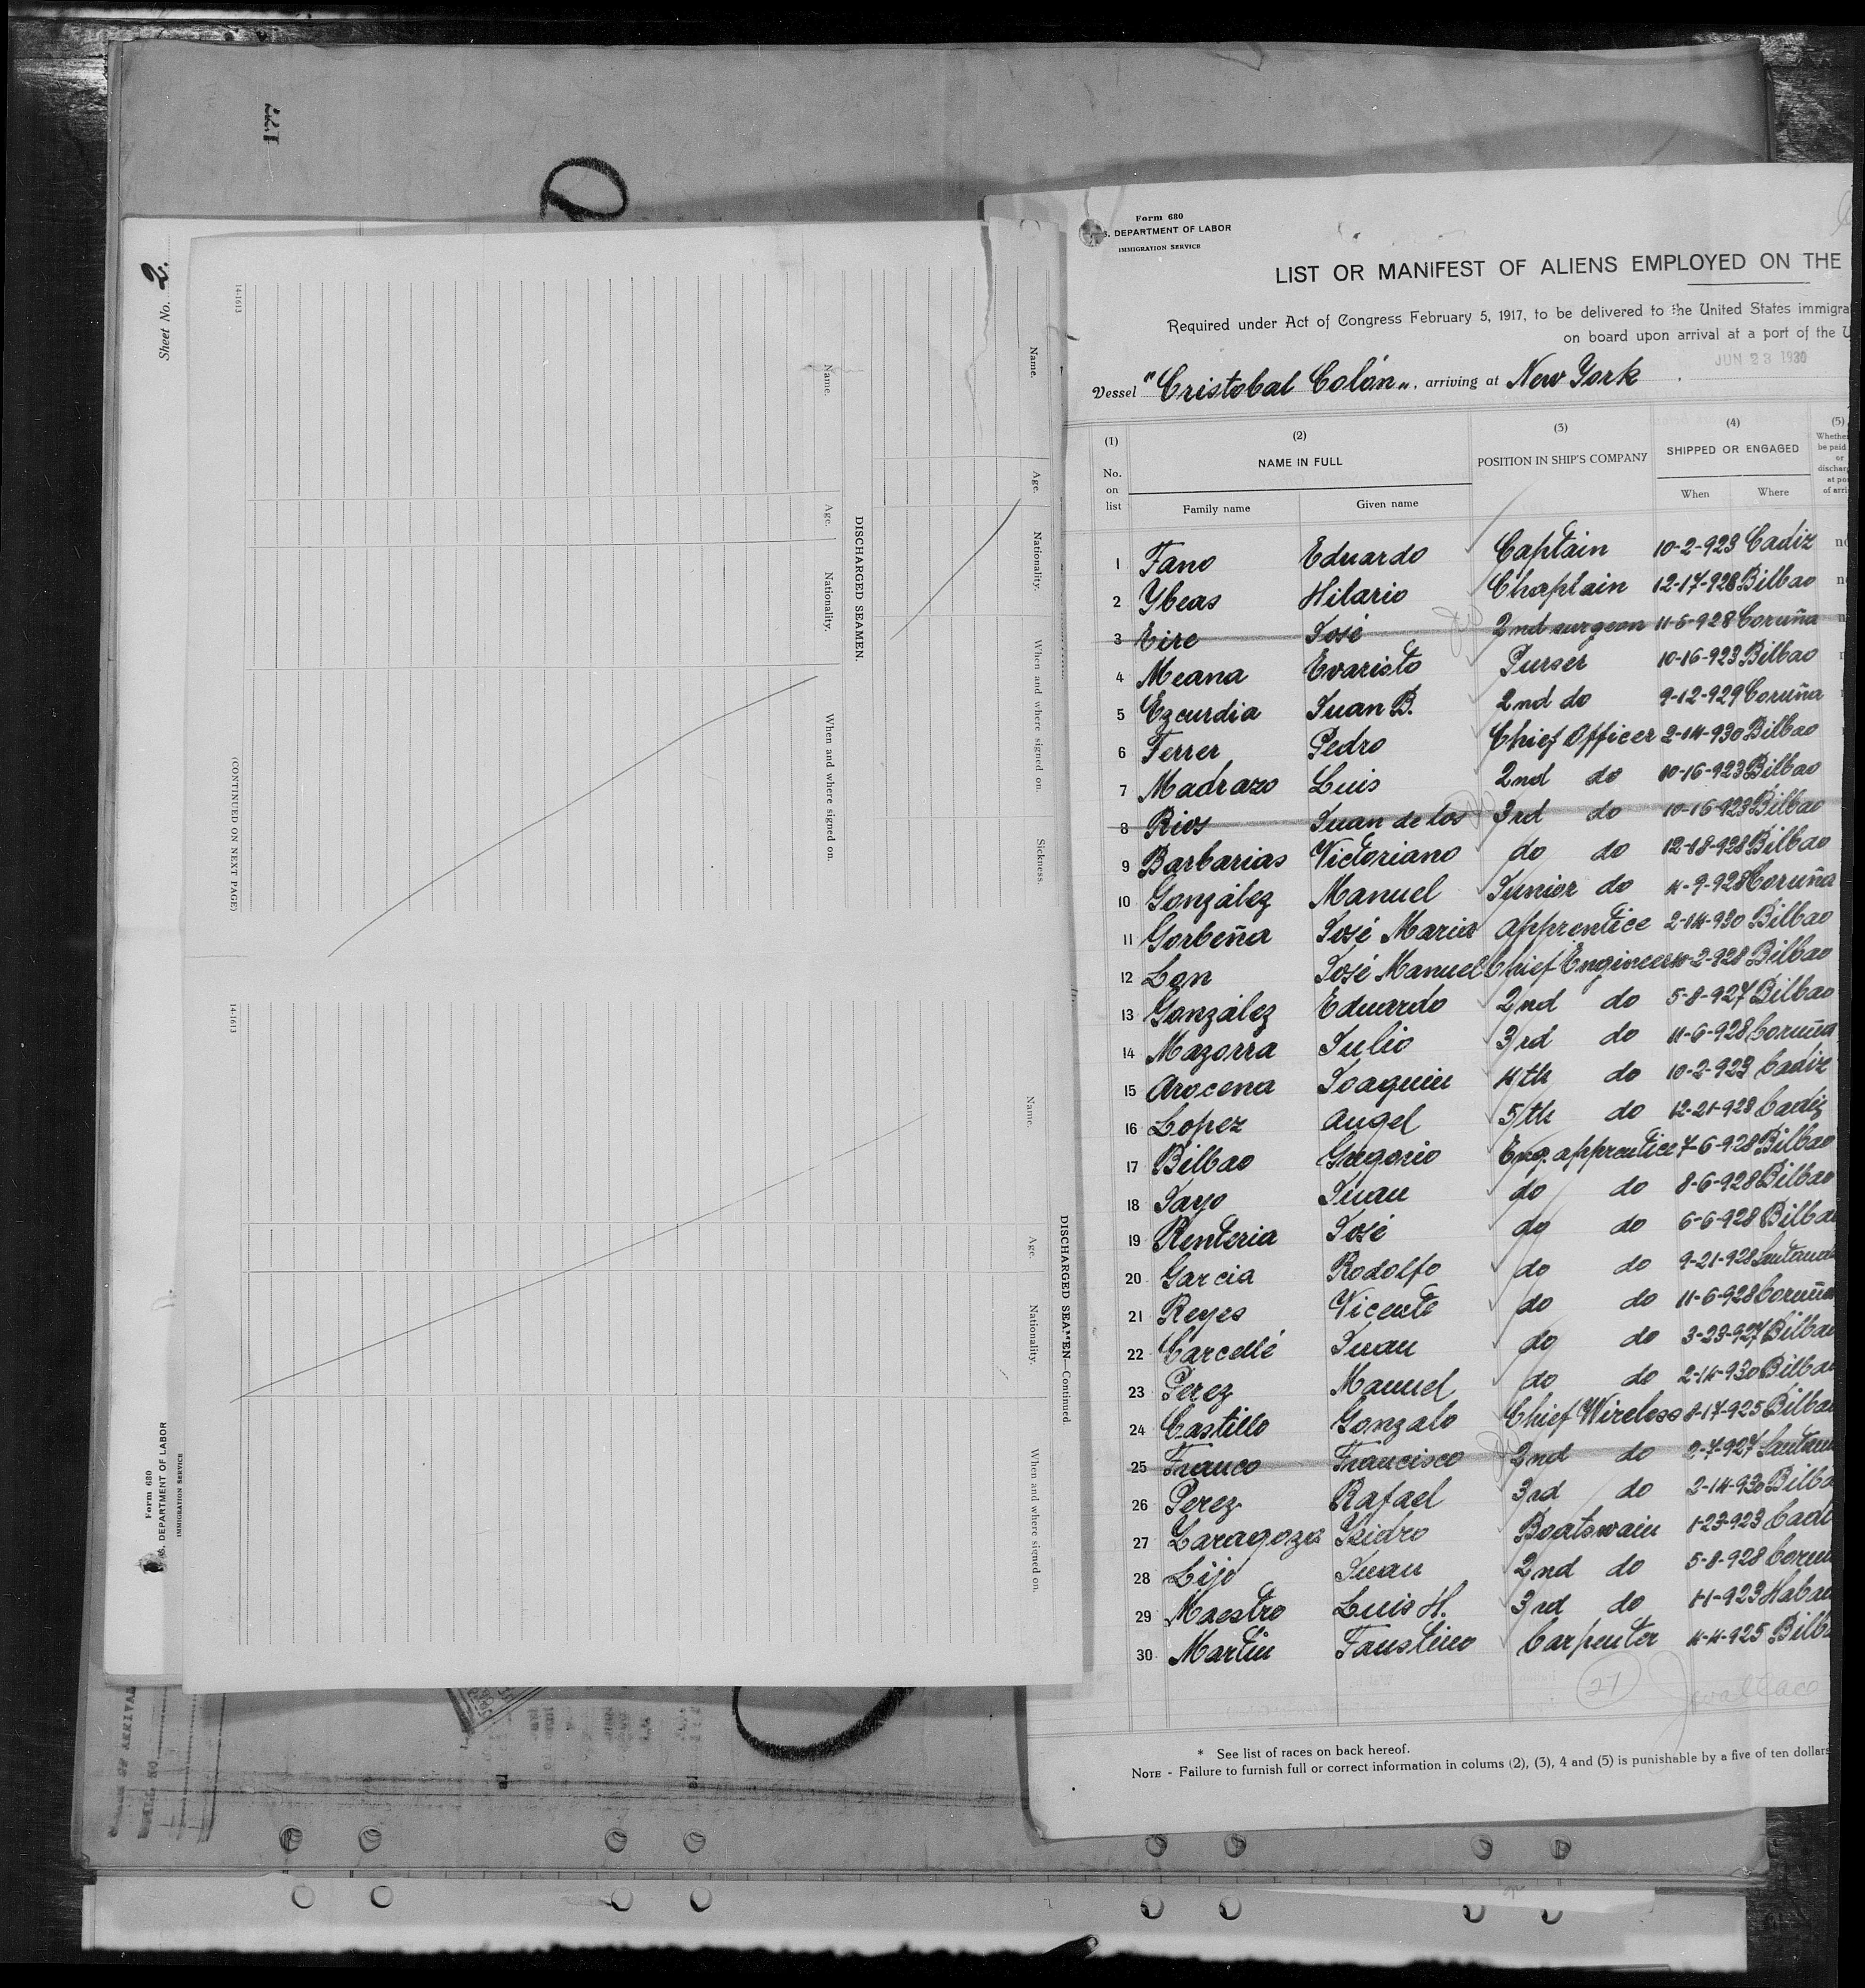 177
Sheet No. 2.
14-1613
Name.
Age.
Nationality.
When and where signed on.
Sickness.
DISCHARGED SEAMEN.
Name.
Age.
Nationality.
When and where signed on.
(CONTINUED ON NEXT PAGE)
14-1613
DISCHARGED SEAMEN—Continued
Name.
Age.
Nationality.
When and where signed on.
Form 680
S. DEPARTMENT OF LABOR
IMMIGRATION SERVICE
Form 680
S. DEPARTMENT OF LABOR
IMMIGRATION SERVICE
LIST OR MANIFEST OF ALIENS EMPLOYED ON THE
Required under Act of Congress February 5, 1917, to be delivered to the United States immigra
on board upon arrival at a port of the U
JUN 23 1930
Vessel "Cristobal Colón", arriving at New York
(1) (2) (3) (4) (5)
No. on list NAME IN FULL POSITION IN SHIP'S COMPANY SHIPPED OR ENGAGED
Family name Given name When Where
1 Fano Eduardo Captain 10-2-923 Cadiz
2 Ybeas Hilario Chaplain 12-17-928 Bilbao
3 Eire José 2nd surgeon 11-6-928 Coruña
4 Meana Evaristo Purser 10-16-923 Bilbao
5 Ezcurdia Juan B. 2nd do 9-12-929 Coruña
6 Ferrer Pedro Chief Officer 2-14-930 Bilbao
7 Madrazo Luis 2nd do 10-16-923 Bilbao
8 Rios Juan de los 3rd do 10-16-923 Bilbao
9 Barbarias Victoriano do do 12-18-928 Bilbao
10 González Manuel Junior do 4-9-928 Coruña
11 Gorbeña José Maria apprentice 2-14-930 Bilbao
12 Lon José Manuel Chief Engineer 10-2-928 Bilbao
13 González Eduardo 2nd do 5-8-927 Bilbao
14 Mazorra Julio 3rd do 11-6-928 Coruña
15 Arocena Joaquin 4th do 10-2-923 Cadiz
16 Lopez Angel 5th do 12-21-928 Cadiz
17 Bilbao Gregorio Eng. apprentice 7-6-928 Bilbao
18 Jayo Juan do do 8-6-928 Bilbao
19 Renteria José do do 6-6-928 Bilba
20 Garcia Rodolfo do do 9-21-928 Santand
21 Reyes Vicente do do 11-6-928 Coruña
22 Carcellé Juan do do 3-23-927 Bilba
23 Perez Manuel do do 2-14-930 Bilba
24 Castillo Gonzalo Chief Wireless 8-17-925 Bilba
25 Franco Francisco 2nd do 2-7-927 Santan
26 Perez Rafael 3rd do 2-14-930 Bilba
27 Zaragoza Isidro Boatswain 1-23-923 Cadi
28 Lijo Juan 2nd do 5-8-928 Coruñ
29 Maestro Luis H. 3rd do 1-1-923 Haban
30 Martin Faustino Carpenter 4-4-925 Bilb
27 Jwallace
* See list of races on back hereof.
NOTE - Failure to furnish full or correct information in colums (2), (3), 4 and (5) is punishable by a five of ten dollars